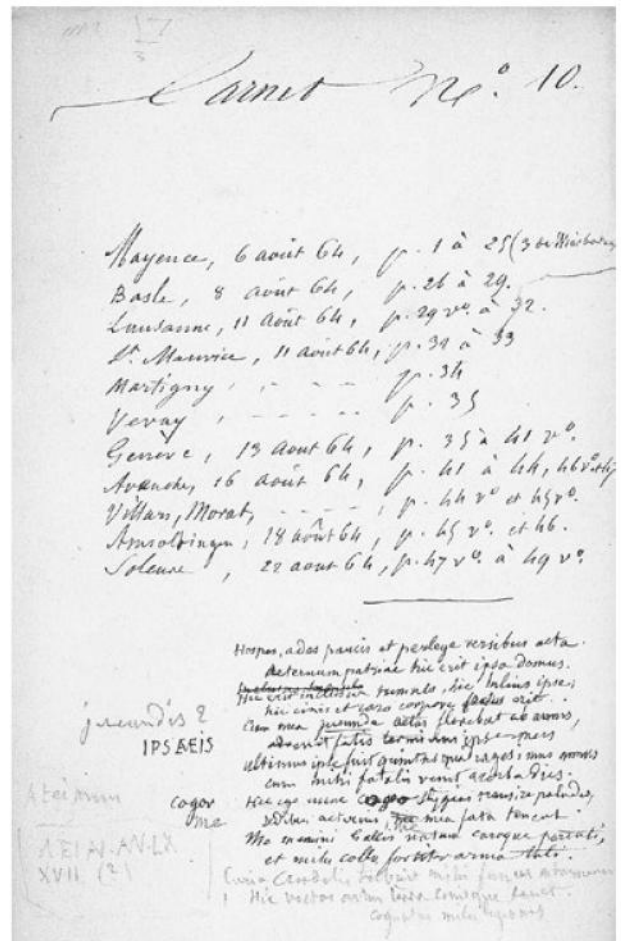 Carnet No. 10.
Mayence, 6 août 64, p. 1 à 25 (3 de Wiesbaden
Basle, 8 août 64, p. 26 à 29.
Lausanne, 11 Août 64, p. 29 vo. à 32.
St. Maurice, 11 août 64, p. 32 à 33
Martigny, - - - p. 34
Vevay, - - - - - p. 35
Genève, 13 Aout 64, p. 35 à 41 vo.
Avanche, 16 août 64, p. 41 à 44, 46 vo et 47
Villars, Morat, - - - - , p. 44 vo et 45 vo.
Amsoldingen, 18 août 64, p. 45 vo. et 46.
Soleure, 22 aout 64, p. 47 vo. à 49 vo.
Hospes, ades paucis et perlege versibus acta
Aeternum patriae hic erit ipsa domus.
Hic erit inclusus tumulo, hic Iulius ipse,
hic cinis et caro corpore factus erit.
Cum mea jucunda aetas florebat ab annis,
advenit fatis terminus ipse meis
ultimus ipse fuit
cum mihi fatalis venit acerba dies.
Hic ego nunc cogo stygias transire paludes,
sedibus aeternis me mea fata tenent.
Me memini Callis natum caroque parenti,
et mihi collo fortiter arma tuli.
jucundis ?
IPSAEIS
cogor
me
XVII (?)